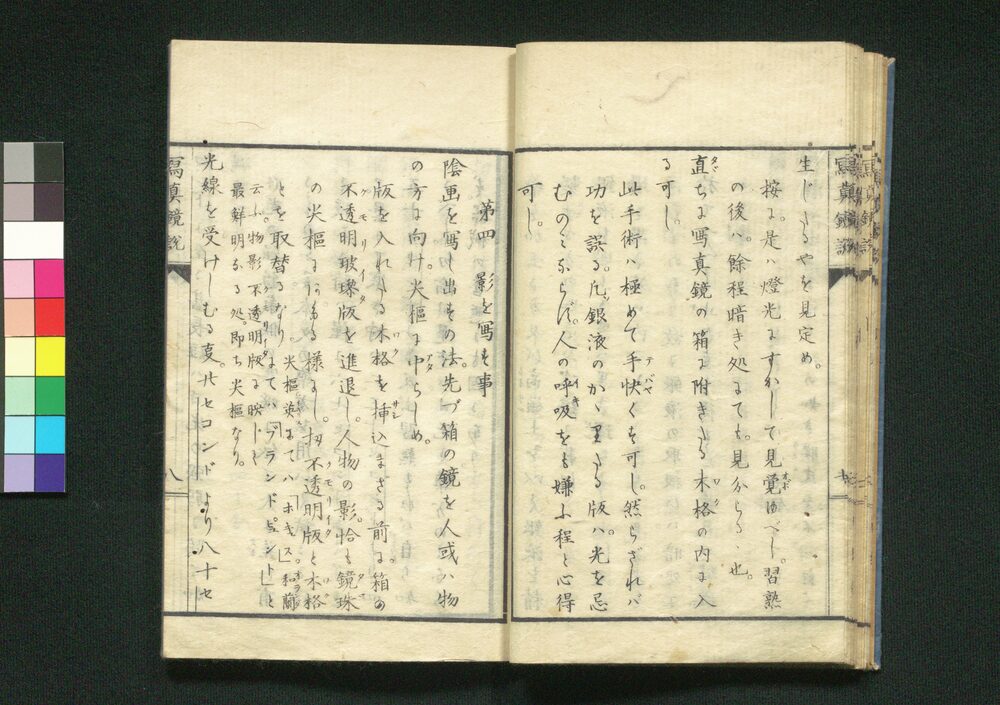 生じたるやを見定め。
按に。是ハ燈光にすかして見覚ゆべし。習熟
の後ハ。餘程暗き処にても。見分らるゝ也。
直ちに写真鏡の箱に附きたる木格の内に入
る可し。
此手術ハ極めて手快くす可し。然らざれバ
功を誤る。凡銀液のかゝりたる版ハ。光を忌
むのミならず。人の呼吸をも嫌ふ程と心得
可し。
第四 影を写す事
陰画を写し出すの法。先づ箱の鏡を人或ハ物
の方に向け。火樞に中らしめ。
版を入れたる木格を挿込まざる前に。箱の
不透明玻瓈版を進退し。人物の影。恰も鏡珠
の火樞に止まる様にし。扨不透明版と木格
とを取替るなり。火樞英にてハ「ホキス」和蘭
にてハ「ブランドピュント」と
云ふ。物影不透明版に映じて
最鮮明なる処。即ち火樞なり。
光線を受けしむる事。廿セコンドより八十セ
寫真鏡説
七
寫真鏡説
八